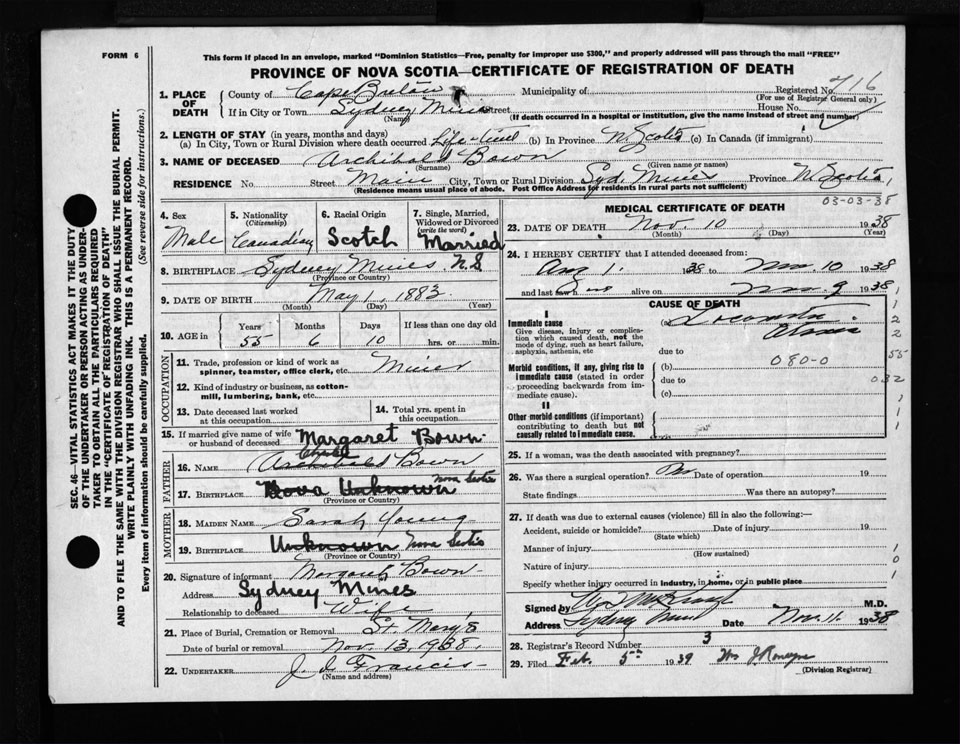 FORM 6
This form if placed in an envelope, marked "Dominion Statistics—Free, penalty for improper use $300," and properly addressed will pass through the mail "FREE"
PROVINCE OF NOVA SCOTIA—CERTIFICATE OF REGISTRATION OF DEATH
SEC. 46—VITAL STATISTICS ACT MAKES IT THE DUTY
OF THE UNDERTAKER OR PERSON ACTING AS UNDER-
TAKER TO OBTAIN ALL THE PARTICULARS REQUIRED
IN THE "CERTIFICATE OF REGISTRATION OF DEATH"
AND TO FILE THE SAME WITH THE DIVISION REGISTRAR WHO SHALL ISSUE THE BURIAL PERMIT.
WRITE PLAINLY WITH UNFADING INK. THIS IS A PERMANENT RECORD.
Every item of information should be carefully supplied. (See reverse side for instructions.)
1. PLACE OF DEATH County of Cape Breton Municipality of Registered No. 716
(For use of Registrar General only)
If in City or Town Sydney Mines Street House No.
(Name) (If death occurred in a hospital or institution, give the name instead of street and number)
2. LENGTH OF STAY (in years, months and days)
(a) In City, Town or Rural Division where death occurred Life time (b) In Province N. Scotia (c) In Canada (if immigrant)
3. NAME OF DECEASED Archibald Bown
(Surname) (Given name or names)
RESIDENCE No. Street Main City, Town or Rural Division Syd. Mines Province N. Scotia
(Residence means usual place of abode. Post Office Address for residents in rural parts not sufficient)
03-03-38
4. Sex Male
5. Nationality (Citizenship) Canadian
6. Racial Origin Scotch
7. Single, Married, Widowed or Divorced (write the word) Married
8. BIRTHPLACE Sydney Mines. N.S.
(Province or Country)
9. DATE OF BIRTH May 1, 1883
(Month) (Day) (Year)
10. AGE in Years Months Days If less than one day old
55 6 10 hrs. or min.
OCCUPATION
11. Trade, profession or kind of work as spinner, teamster, office clerk, etc. Miner
12. Kind of industry or business, as cotton-mill, lumbering, bank, etc.
13. Date deceased last worked at this occupation.
14. Total yrs. spent in this occupation.
15. If married give name of wife or husband of deceased Margaret Bown
FATHER
16. NAME Archibald Bown
17. BIRTHPLACE Nova Unknown Nova Scotia
(Province or Country)
MOTHER
18. MAIDEN NAME Sarah Young
19. BIRTHPLACE Unknown Nova Scotia
(Province or Country)
20. Signature of informant Margaret Bown
Address Sydney Mines
Relationship to deceased Wife
21. Place of Burial, Cremation or Removal St Mary's
Date of burial or removal Nov. 13, 1938.
22. UNDERTAKER J. D. Francis
(Name and address)
MEDICAL CERTIFICATE OF DEATH
23. DATE OF DEATH Nov. 10 1938
(Month) (Day) (Year)
24. I HEREBY CERTIFY that I attended deceased from:
Aug 1. 1938 to Nov. 10 1938
and last saw h alive on Nov. 9 1938
CAUSE OF DEATH
I
Immediate cause (a) Locomotor Ataxia
Give disease, injury or complication which caused death, not the mode of dying, such as heart failure, asphyxia, asthenia, etc
due to 080-0
Morbid conditions, if any, giving rise to immediate cause (stated in order proceeding backwards from immediate cause). (b)
due to
(c)
II
Other morbid conditions (if important) contributing to death but not causally related to immediate cause.
1
1
2
2
55
032
1
1
1
25. If a woman, was the death associated with pregnancy?
26. Was there a surgical operation? No Date of operation 19
State findings Was there an autopsy?
27. If death was due to external causes (violence) fill in also the following:—
Accident, suicide or homicide? Date of injury 19
(State which)
Manner of injury
(How sustained)
Nature of injury
Specify whether injury occurred in industry, in home, or in public place
1
0
1
Signed by M.D.
Address Sydney Mines Date Nov. 11. 1938
28. Registrar's Record Number 3
29. Filed Feb. 5th 1939
(Division Registrar)